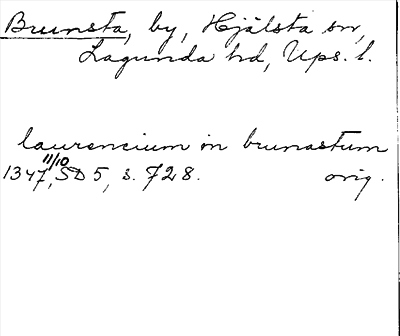 Brunsta, by, Hjälsta sn,
Lagunda hd, Ups. l.
laurencium in brunastum
11/10
1347, SD 5, s. 728. orig.